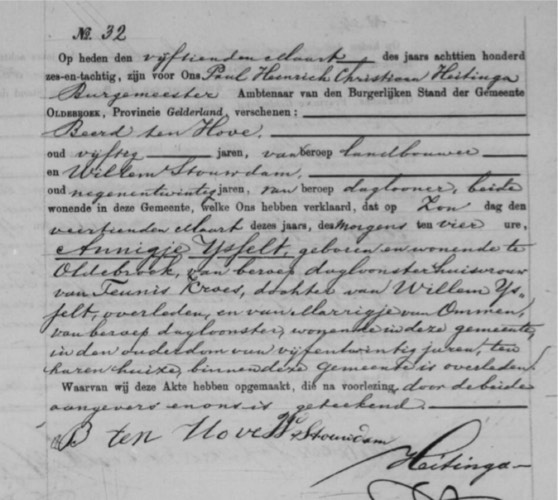 No. 32
Op heden den vijftienden Maart des jaars achttien honderd
zes-en-tachtig, zijn voor Ons Paul Heinrich Christiaan Heitinga
Burgemeester Ambtenaar van den Burgerlijken Stand der Gemeente
OLDEBROEK, Provincie Gelderland, verschenen:
Beerd ten Hove.
oud vijftig jaren, van beroep landbouwer
en Willem Stouwdam,
oud negenentwintig jaren, van beroep daglooner, beide
wonende in deze Gemeente, welke Ons hebben verklaard, dat op Zon dag den
veertienden Maart dezes jaars, des Morgens ten vier ure,
Annigje IJsselt, geboren en wonende te
Oldebroek, van beroep dagloonster huisvrouw
van Teunis Kroes, dochter van Willem IJs-
selt, overleden, en van Marrigje van Ommen,
van beroep dagloonster, wonende in deze gemeente,
in den ouderdom van vijfentwintig jaren, ten
haren huize, binnen deze gemeente is overleden.
Waarvan wij deze Akte hebben opgemaakt, die na voorlezing, door de beide
aangevers en ons is geteekend
B ten Hove W Stouwdam
Heitinga